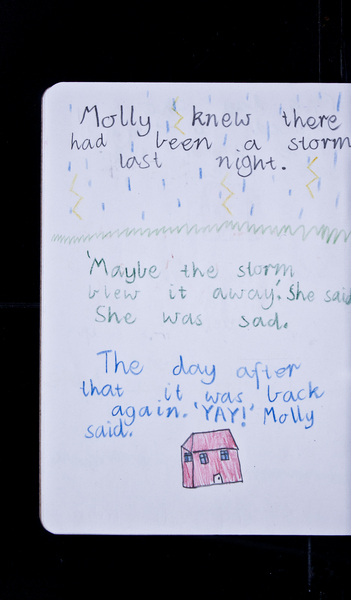 Molly knew there
had been a storm
last night.
'Maybe the storm
blew it away.' She said
She was sad.
The day after
that it was back
again. 'YAY!' Molly
said.